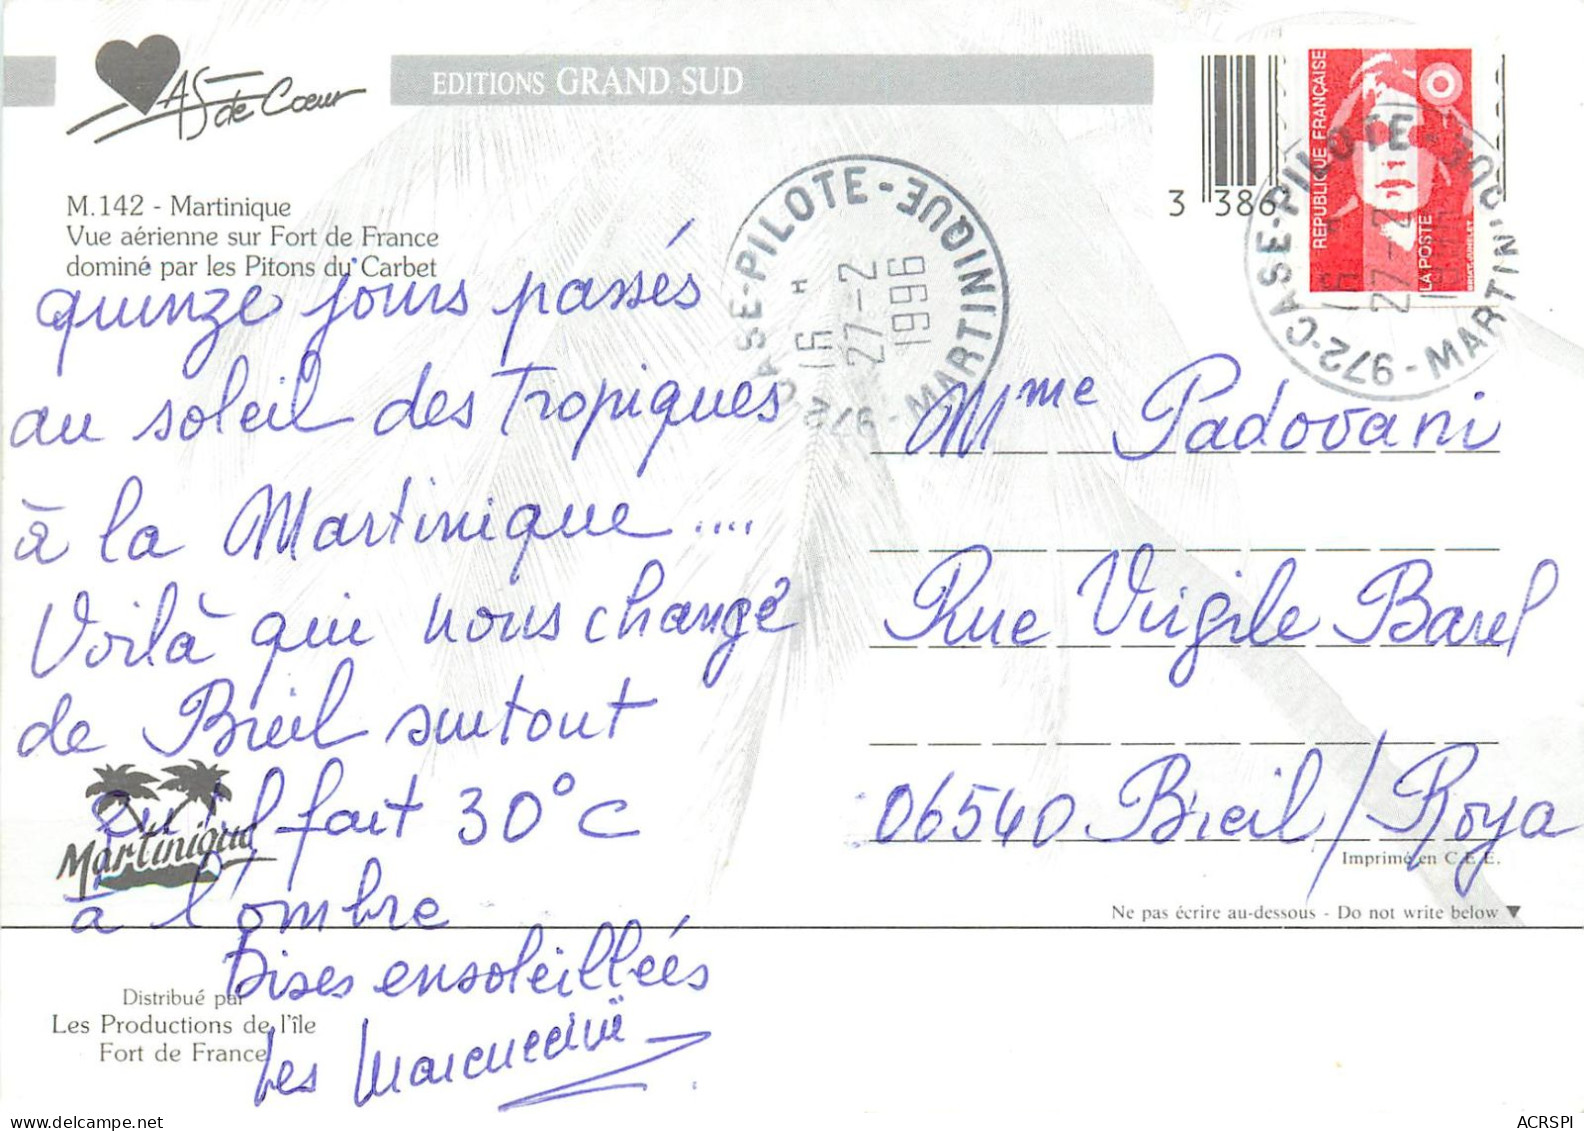 AS de Coeur
EDITIONS GRAND SUD
M.142 - Martinique
Vue aérienne sur Fort de France
dominé par les Pitons du Carbet
3 386
REPUBLIQUE FRANÇAISE
LA POSTE
972-CASE-PILOTE - MARTINIQUE
16 H
27-2
1996
972-CASE-PILOTE - MARTINIQUE
16 H
27-2
quinze jours passés
au soleil des Tropiques
à la Martinique ....
Voilà qui nous change
de Breil surtout
qu'il fait 30°C
à l'ombre
Bises ensoleillées
Les
Mme Padovani
Rue Virgile Barel
06540 Breil/Roya
Martinique
Imprimé en C.E.E.
Ne pas écrire au-dessous - Do not write below ▼
Distribué par
Les Productions de l'île
Fort de France
delcampe.net
ACRSPI